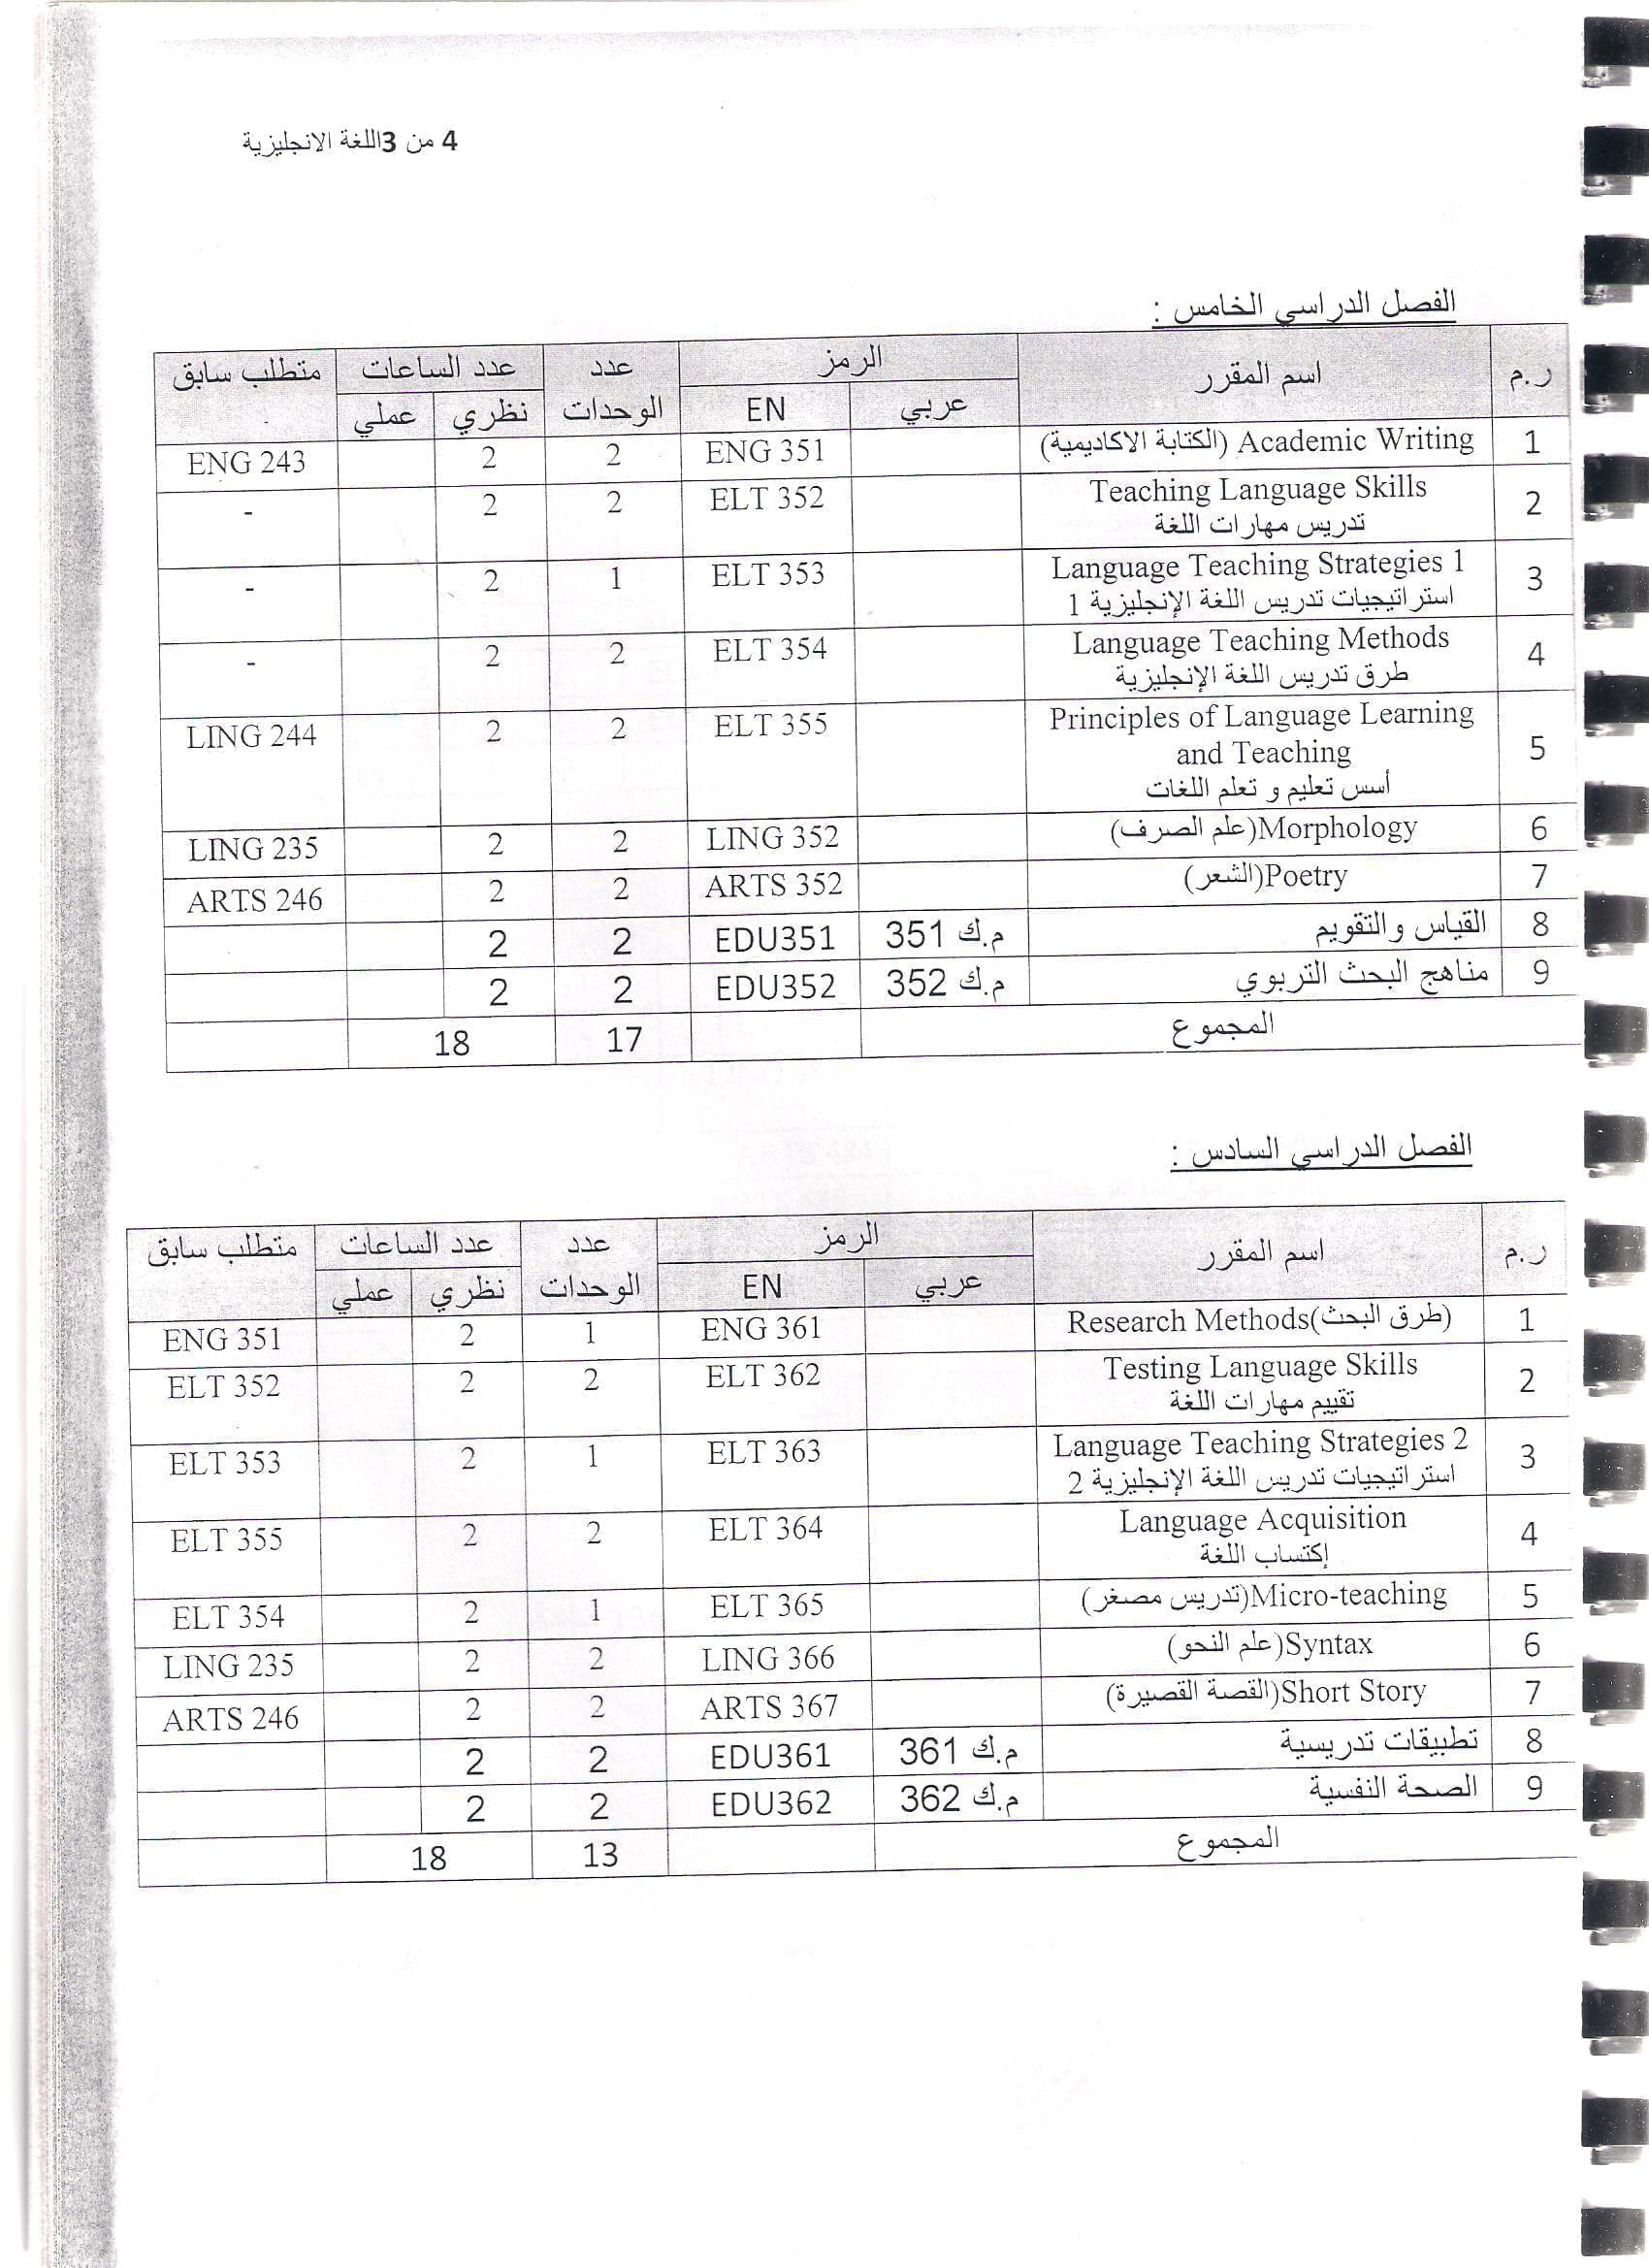 4 من 3اللغة الانجليزية
الفصل الدراسي الخامس :
ر.م اسم المقرر الرمز عدد الوحدات عدد الساعات متطلب سابق
عربي EN نظري عملي
1 Academic Writing (الكتابة الاكاديمية) ENG 351 2 2 ENG 243
2 Teaching Language Skills ELT 352 2 2 -
تدريس مهارات اللغة
3 Language Teaching Strategies 1 ELT 353 1 2 -
استراتيجيات تدريس اللغة الإنجليزية 1
4 Language Teaching Methods ELT 354 2 2 -
طرق تدريس اللغة الإنجليزية
5 Principles of Language Learning ELT 355 2 2 LING 244
and Teaching
أسس تعليم و تعلم اللغات
6 Morphology(علم الصرف) LING 352 2 2 LING 235
7 Poetry(الشعر) ARTS 352 2 2 ARTS 246
8 القياس والتقويم م.ك 351 EDU351 2 2
9 مناهج البحث التربوي م.ك 352 EDU352 2 2
المجموع 17 18
الفصل الدراسي السادس :
ر.م اسم المقرر الرمز عدد الوحدات عدد الساعات متطلب سابق
عربي EN نظري عملي
1 Research Methods(طرق البحث) ENG 361 1 2 ENG 351
2 Testing Language Skills ELT 362 2 2 ELT 352
تقييم مهارات اللغة
3 Language Teaching Strategies 2 ELT 363 1 2 ELT 353
استراتيجيات تدريس اللغة الإنجليزية 2
4 Language Acquisition ELT 364 2 2 ELT 355
إكتساب اللغة
5 Micro-teaching(تدريس مصغر) ELT 365 1 2 ELT 354
6 Syntax(علم النحو) LING 366 2 2 LING 235
7 Short Story(القصة القصيرة) ARTS 367 2 2 ARTS 246
8 تطبيقات تدريسية م.ك 361 EDU361 2 2
9 الصحة النفسية م.ك 362 EDU362 2 2
المجموع 13 18